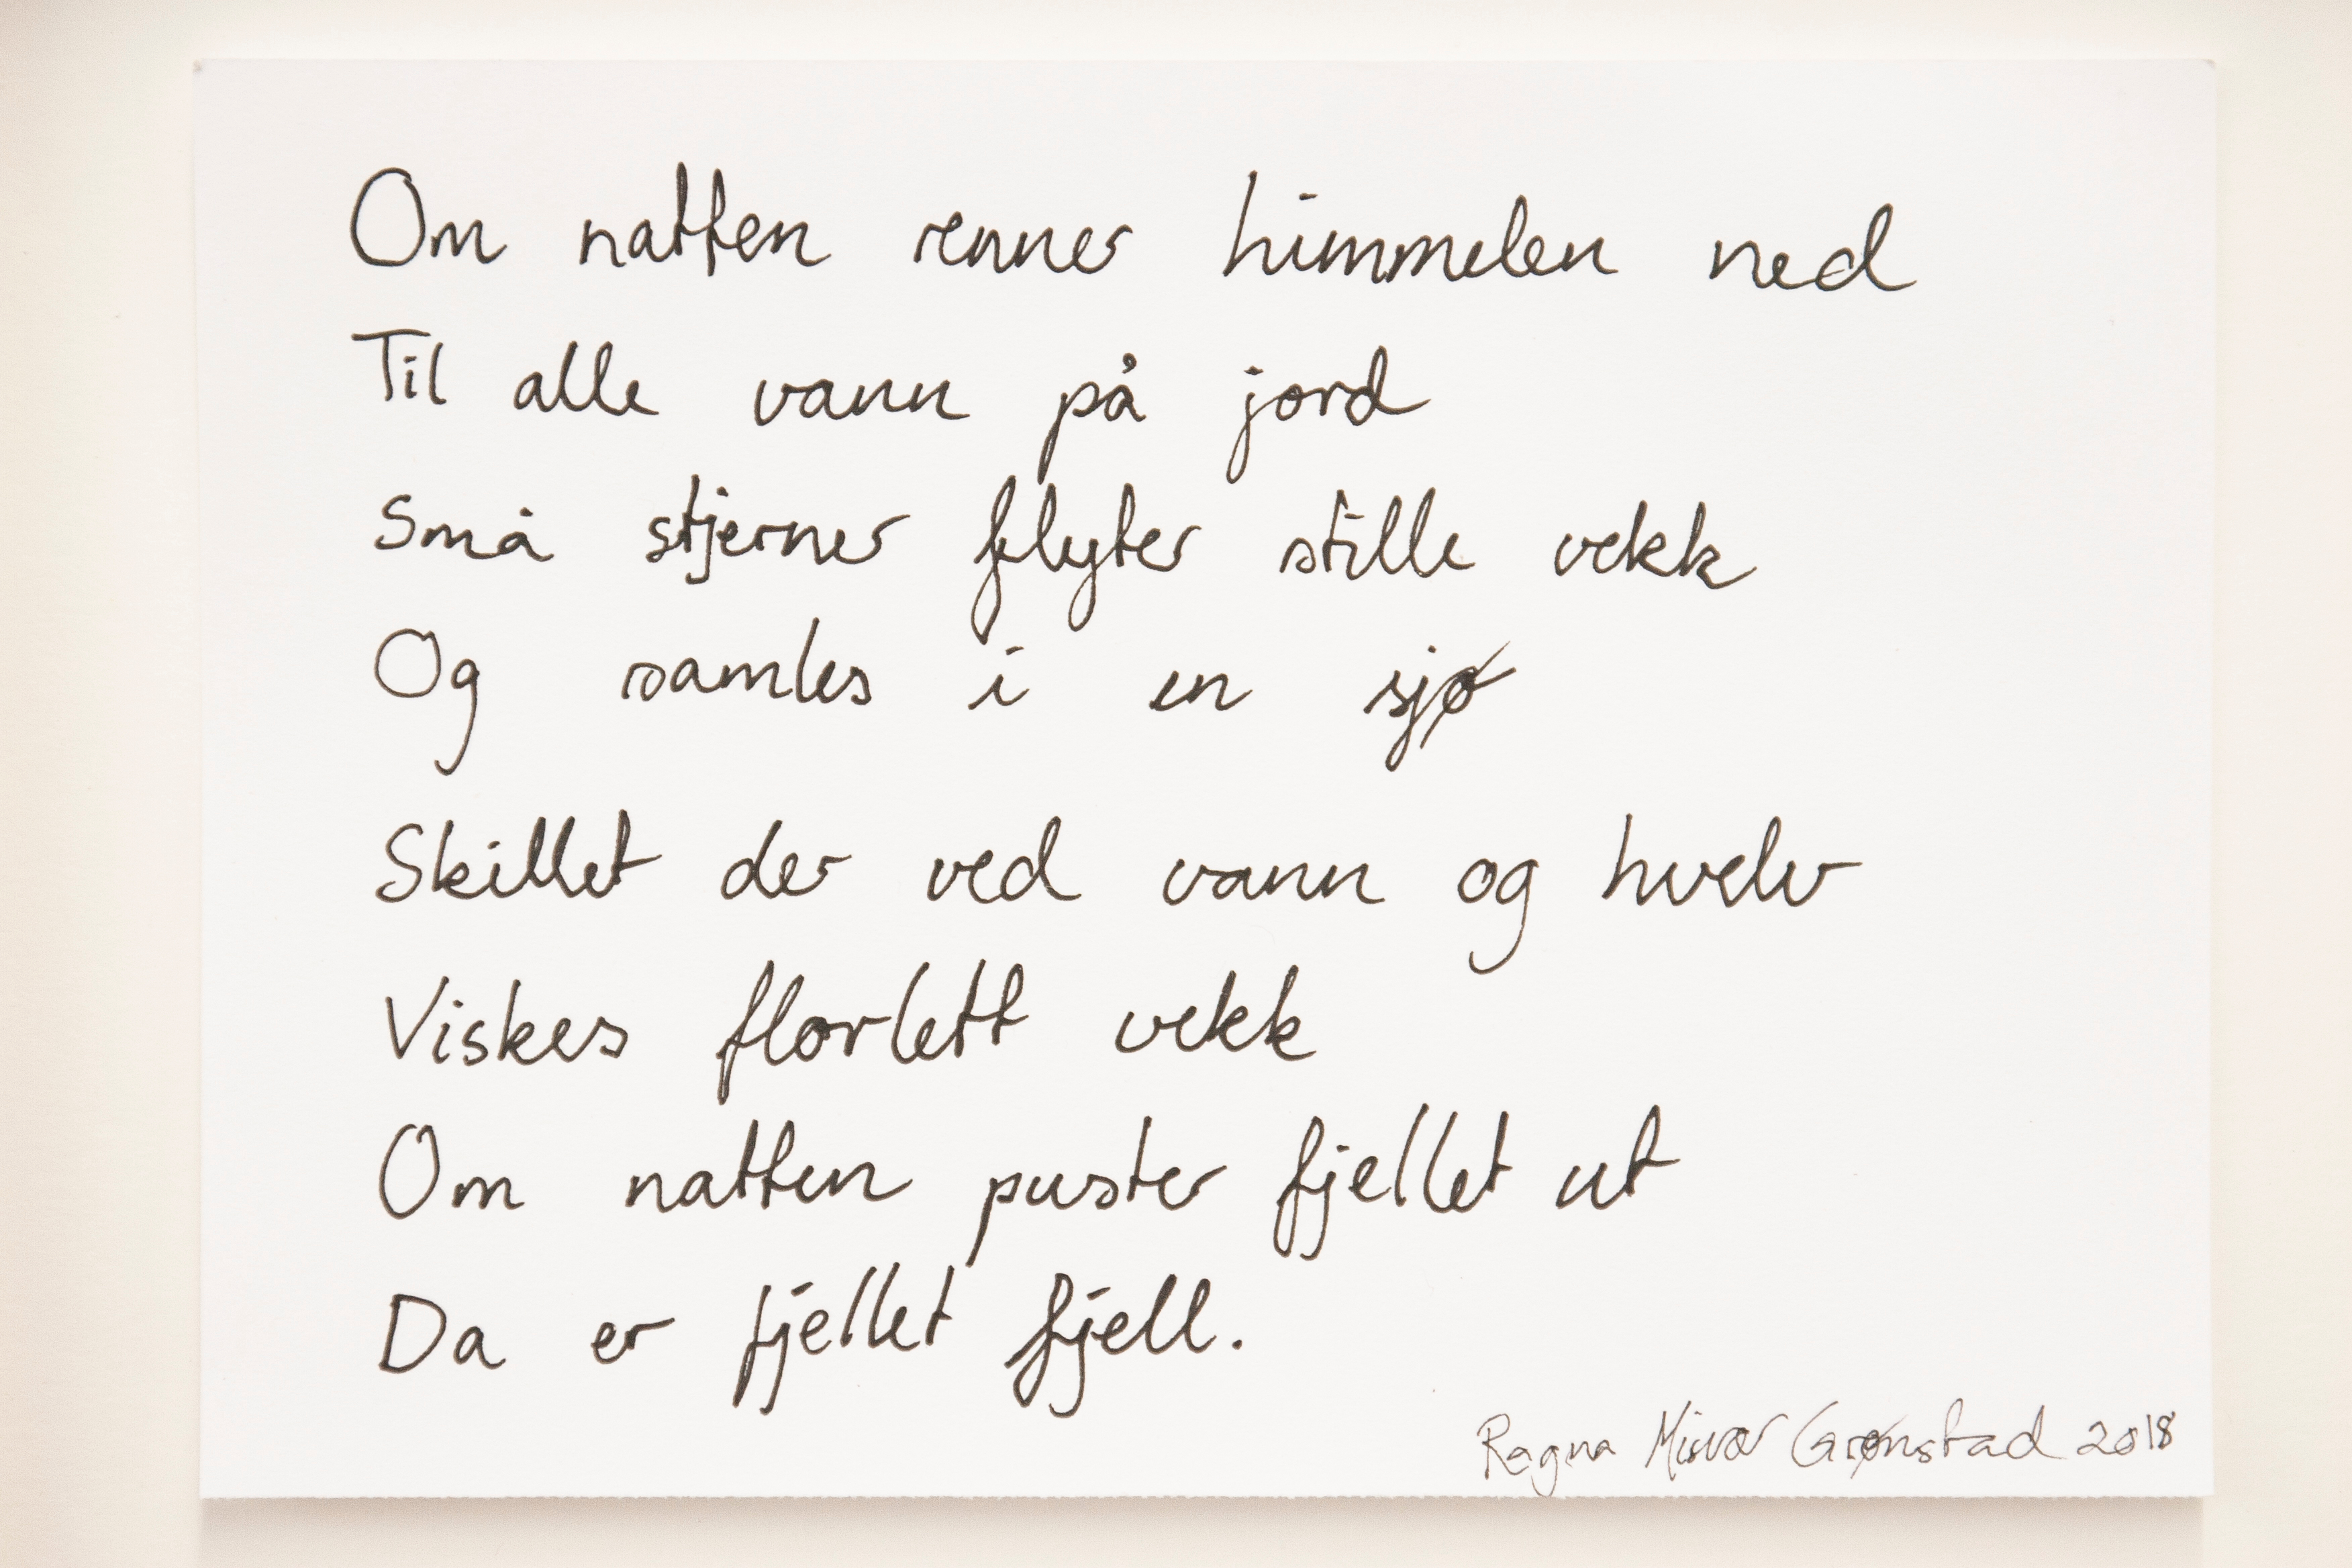 Om natten renner himmelen ned
Til alle vann på jord
Små stjerner flyter stille vekk
Og samles i en sjø
Skillet der ved vann og hvelv
Viskes florlett vekk
Om natten puster fjellet ut
Da er fjellet fjell.
Ragna Misvær Grønstad 2018